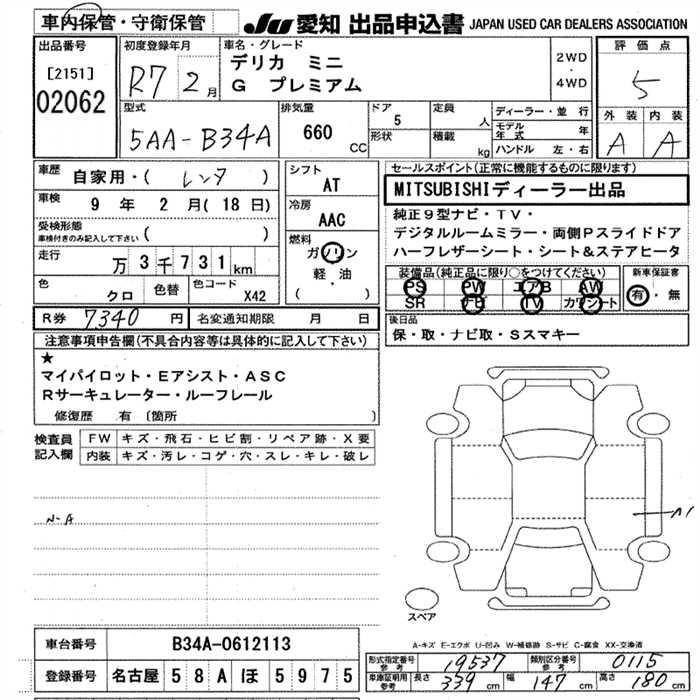 車内保管・守衛保管
JU 愛知 出品申込書 JAPAN USED CAR DEALERS ASSOCIATION
出品番号
[2151]
02062
初度登録年月
R7 2 月
車名・グレード
デリカ ミニ
G プレミアム
2WD
・
4WD
評価点
5
外装 内装
A A
型式
5AA-B34A
排気量
660 CC
ドア
5
形状
定員
人
積載
kg
ディーラー・並行
モデル年式 年
ハンドル 左・右
車歴
自家用・( レンタ )
車検
9 年 2 月(18日)
受検形態
車検付きのみ記入して下さい ( )
走行
万 3 千 7 3 1 km
色
クロ
色替
色コード
X42
シフト
AT
冷房
AAC
燃料
ガソリン
軽・油
( )
セールスポイント(正常に機能するものに限ります)
MITSUBISHIディーラー出品
純正9型ナビ・TV・
デジタルルームミラー・両側Pスライドドア
ハーフレザーシート・シート&ステアヒータ
装備品(純正品に限り○をつけてください)
PS PW エアB AW
SR ナビ TV カワシート
新車保証書
有・無
R券 7340 円 名変通知期限 月 日
後日品
保・取・ナビ取・Sスマキー
注意事項申告欄(不具合内容等は具体的に記入して下さい)
★
マイパイロット・Eアシスト・ASC
Rサーキュレーター・ルーフレール
修復歴 有 〔箇所
検査員記入欄
FW キズ・飛石・ヒビ割・リペア跡・X要
内装 キズ・汚レ・コゲ・穴・スレ・キレ・破レ
N-A
A1
スペア
A-キズ E-エクボ U-凹み W-補修跡 S-サビ C-腐食 XX-交換済
車台番号 B34A-0612113
登録番号 名古屋 5 8 A ほ 5 9 7 5
形式指定番号 参考 19537 類別区分番号 参考 0115
車庫証明用 参考 長さ 339 cm 幅 147 cm 高さ 180 cm